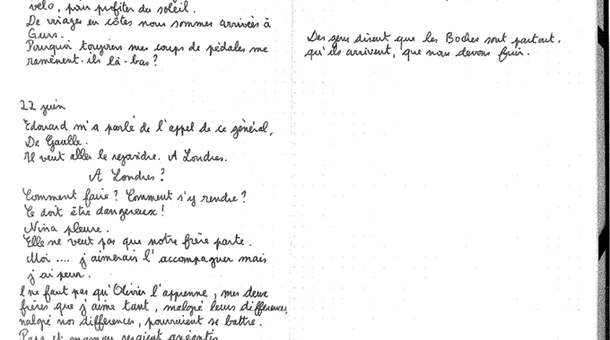 vélo, pour profiter du soleil.
De virages en côtes nous sommes arrivées à
Gurs.
Pourquoi toujours mes coups de pédales me
ramènent-ils là-bas ?
22 juin
Edouard m'a parlé de l'appel de ce général,
De Gaulle.
Il veut aller le rejoindre. A Londres.
A Londres ?
Comment faire ? Comment s'y rendre ?
Ce doit être dangereux !
Nina pleure.
Elle ne veut pas que notre frère parte.
Moi .... j'aimerais l'accompagner mais
j'ai peur.
l ne faut pas qu'Olivier l'apprenne, mes deux
frères que j'aime tant, malgré leurs différences,
malgré nos différences, pourraient se battre.
Papa et maman seraient anéantis
Des gens disent que les Boches sont partout,
qu'ils arrivent, que nous devons fuir.